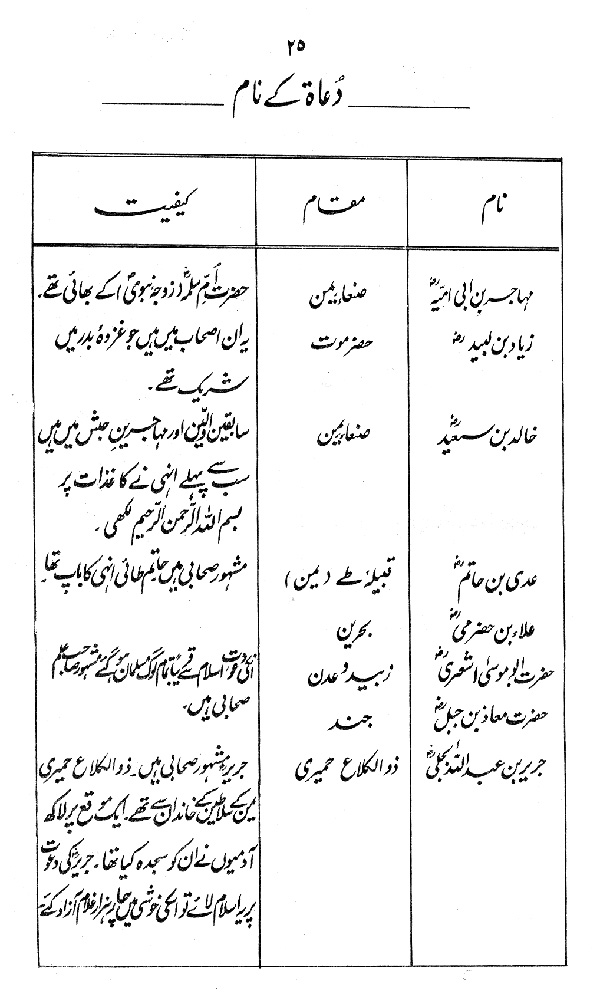 ۲۵
دُعاۃ کے نام
نام مقام کیفیت
مہاجر بن ابی امیہؓ صنعاء یمن حضرت اُمّ سلمہؓ (زوجہ نبویؐ) کے بھائی تھے۔
زیاد بن لبیدؓ حضرموت یہ ان اصحاب میں ہیں جو غزوۂ بدر میں
شریک تھے۔
خالد بن سعیدؓ صنعاء یمن سابقین اولین اور مہاجرین حبش میں ہیں
سب سے پہلے انہی نے کاغذات پر
بسم اللہ الرّحمن الرّحیم لکھی۔
عدی بن حاتمؓ قبیلۂ طے (یمن) مشہور صحابی ہیں حاتم طائی انہی کا باپ تھا۔
علاء بن حضرمیؓ بحرین
حضرت ابو موسیٰ اشعریؓ زبید و عدن انکی دعوت اسلام قریباً تمام لوگ مسلمان ہو گئے مشہور صاحب علم
صحابی ہیں۔
حضرت معاذ بن جبلؓ جند
جریر بن عبداللہ البجلیؓ ذو الکلاع حمیری جریر مشہور صحابی ہیں۔ ذو الکلاع حمیری
یمن کے سلاطین کے خاندان سے تھے۔ ایک موقع پر لاکھ
آدمیوں نے ان کو سجدہ کیا تھا۔ جریرؓ کی دعوت
پر یہ اسلام لائے تو اسکی خوشی میں چار ہزار غلام آزاد کئے